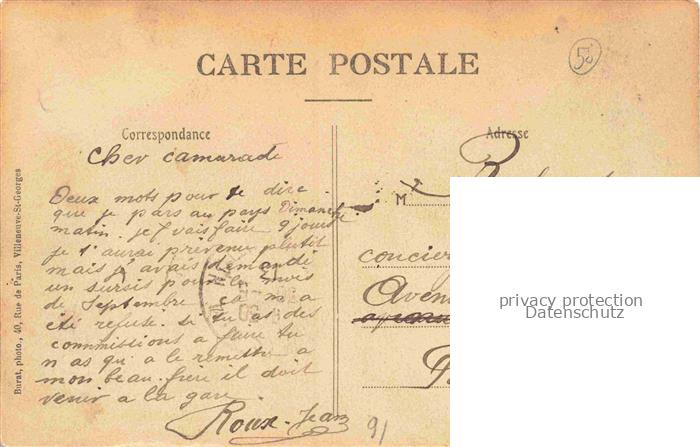 CARTE POSTALE
50
Correspondance
Cher camarade
Deux mots pour te dire
que je pars au pays Dimanche
matin. je vais faire 9 jours
je t'aurai prévenu plutôt
mais j'avais demandé
un sursis pour le mois
de Septembre on m'a
été refusé. si tu as des
commissions a faire tu
n as qu a le remettre a
mon beau frère il doit
venir a la gare.
Roux Jean
91
Adresse
M
concier
Aven
privacy protection
Datenschutz
Burat, photo., 40, Rue de Paris, Villeneuve-St-Georges